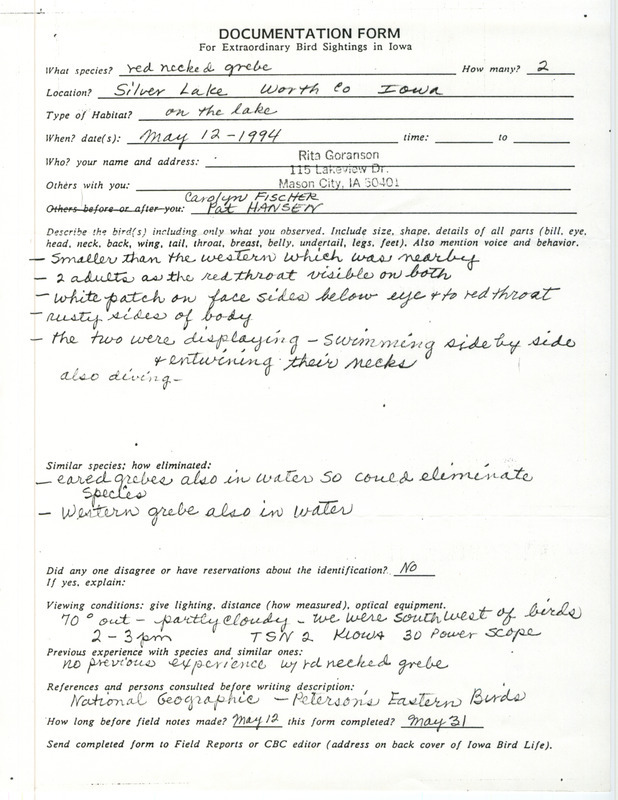 DOCUMENTATION FORM
For Extraordinary Bird Sightings in Iowa
What species? red necked grebe How many? 2
Location? Silver Lake Worth Co Iowa
Type of Habitat? on the lake
When? date(s): May 12-1994 time: to
Who? your name and address: Rita Goranson
115 Lakeview Dr.
Others with you: Mason City, IA 50401
Carolyn FISCHER
Others before or after you: Pat HANSEN
Describe the bird(s) including only what you observed. Include size, shape, details of all parts (bill, eye,
head, neck, back, wing, tail, throat, breast, belly, undertail, legs, feet). Also mention voice and behavior.
- Smaller than the western which was nearby
- 2 adults as the red throat visible on both
- white patch on face sides below eye & to red throat
- rusty sides of body
- the two were displaying - swimming side by side
& entwining their necks
also diving-
Similar species; how eliminated:
- eared grebes also in water so could eliminate
species
- Western grebe also in water
Did any one disagree or have reservations about the identification? No
If yes, explain:
Viewing conditions: give lighting, distance (how measured), optical equipment.
70° out - partly cloudy - we were southwest of birds
2-3pm TSN 2 Kiowa 30 Power scope
Previous experience with species and similar ones:
no previous experience w/rd necked grebe
References and persons consulted before writing description:
National Geographic - Peterson's Eastern Birds
How long before field notes made? May 12 this form completed? May 31
Send completed form to Field Reports or CBC editor (address on back cover of Iowa Bird Life).